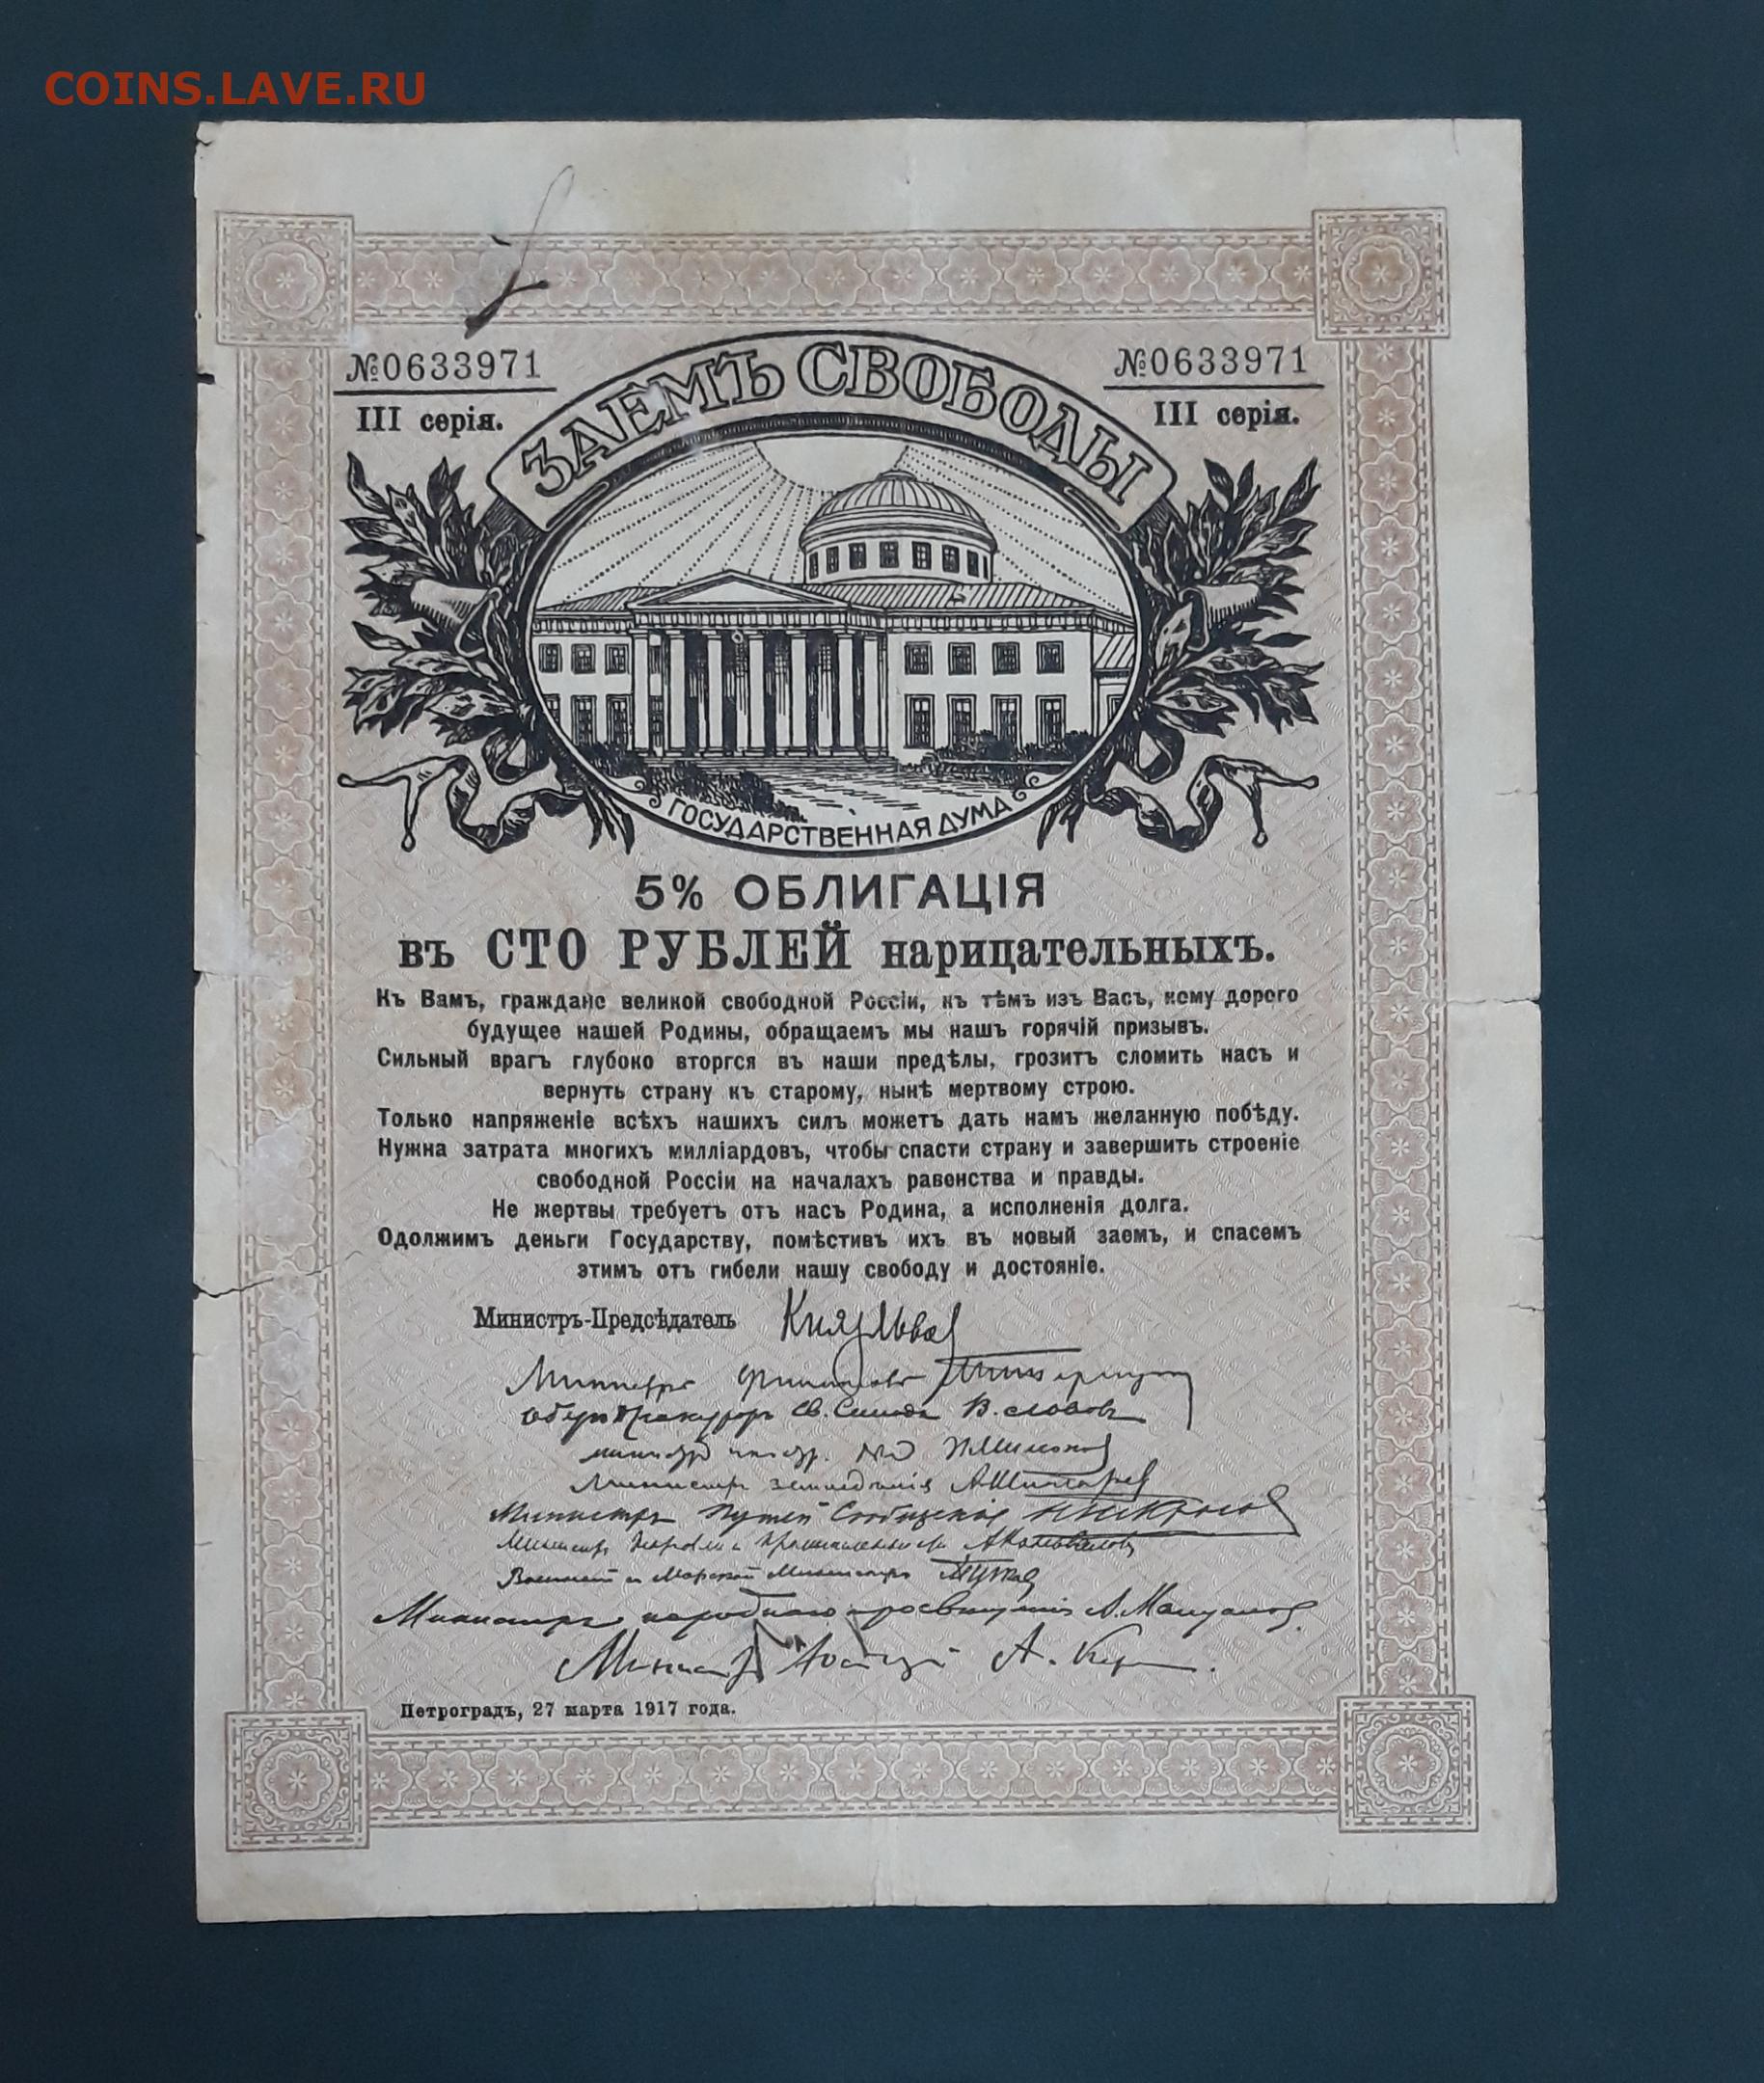 COINS.LAVE.RU
№0633971
III серія.
№0633971
III серія.
ЗАЕМЪ СВОБОДЫ
ГОСУДАРСТВЕННАЯ ДУМА
5% ОБЛИГАЦІЯ
въ СТО РУБЛЕЙ нарицательныхъ.
Къ Вамъ, граждане великой свободной Россіи, къ тѣмъ изъ Васъ, кому дорого
будущее нашей Родины, обращаемъ мы нашъ горячій призывъ.
Сильный врагъ глубоко вторгся въ наши предѣлы, грозитъ сломить насъ и
вернуть страну къ старому, нынѣ мертвому строю.
Только напряженіе всѣхъ нашихъ силъ можетъ дать намъ желанную побѣду.
Нужна затрата многихъ милліардовъ, чтобы спасти страну и завершить строеніе
свободной Россіи на началахъ равенства и правды.
Не жертвы требуетъ отъ насъ Родина, а исполненія долга.
Одолжимъ деньги Государству, помѣстивъ ихъ въ новый заемъ, и спасемъ
этимъ отъ гибели нашу свободу и достояніе.
Министръ-Предсѣдатель Князь Львов
Министръ Финансовъ
Оберъ Прокуроръ Св. Синода В. Львовъ
Министръ
Министръ земледѣлія А. Шингарев
Министръ Путей Сообщенія Н. Некрасов
Министръ Торговли и Промышленности А. Коновалов
Военный и Морской Министръ
Министръ народнаго просвѣщенія А. Мануилов.
Министръ Юстиціи А.
Петроградъ, 27 марта 1917 года.